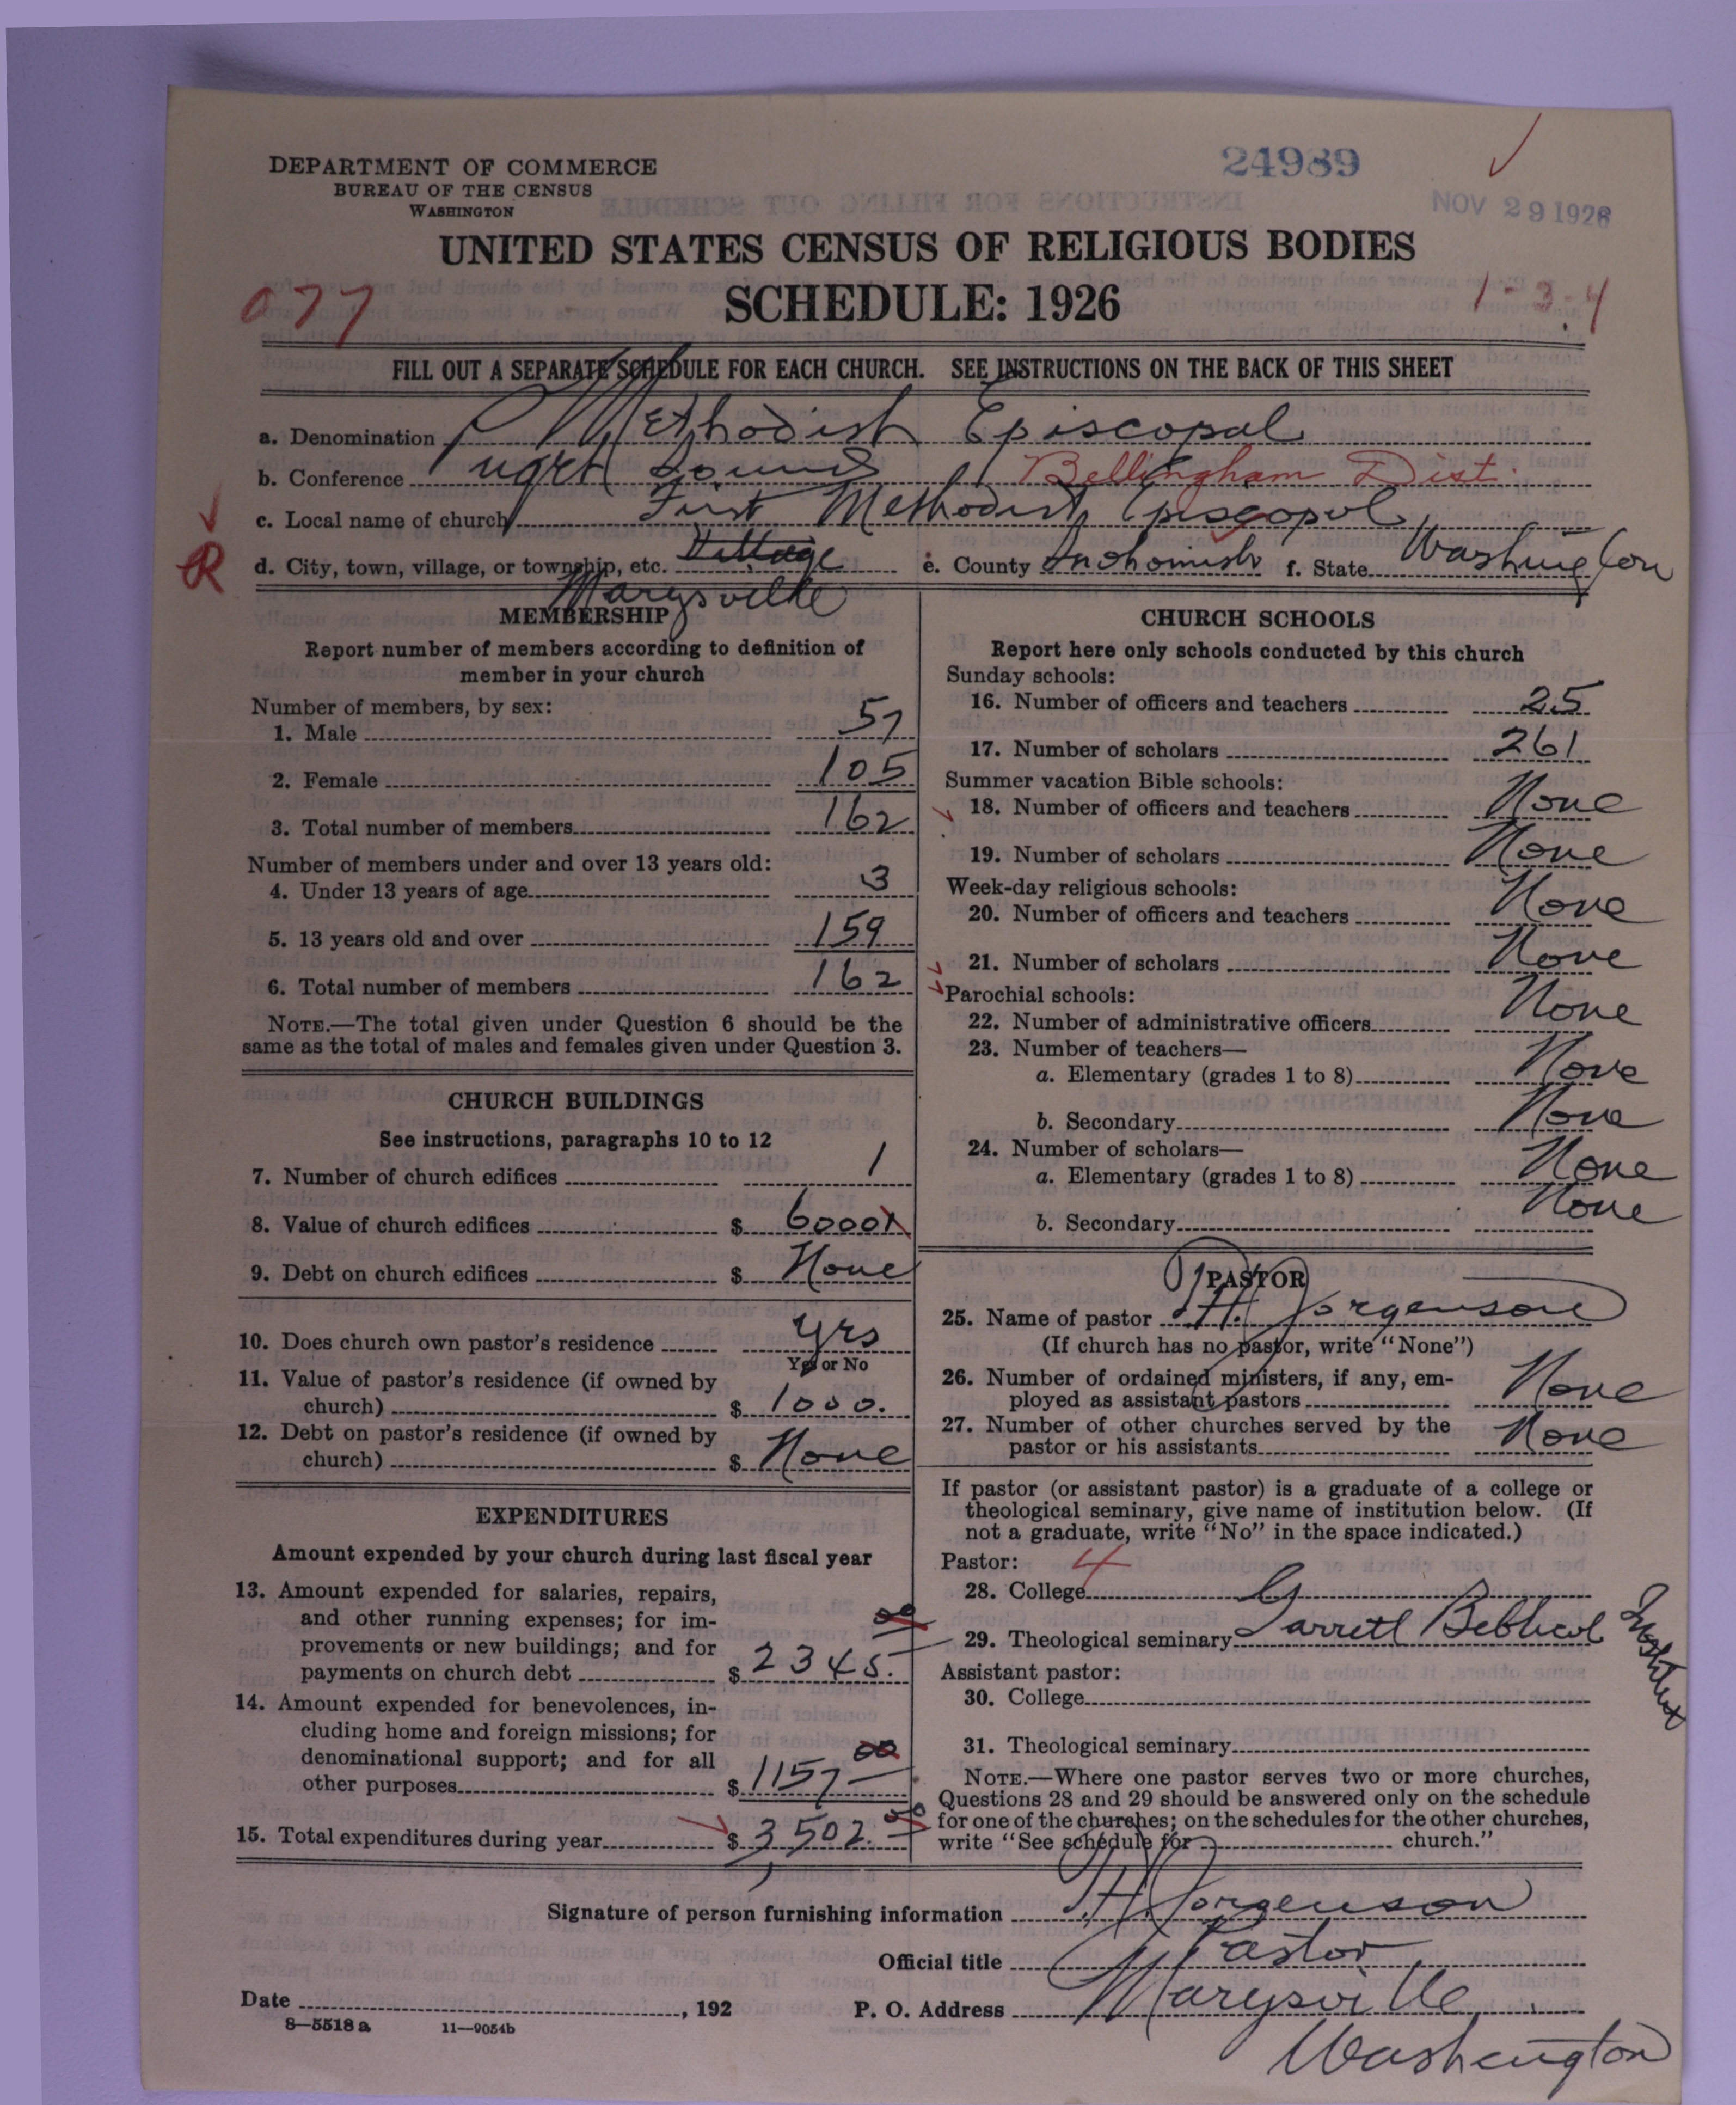 DEPARTMENT OF COMMERCE
BUREAU OF THE CENSUS
WASHINGTON
24989
NOV 29 1926
UNITED STATES CENSUS OF RELIGIOUS BODIES
SCHEDULE: 1926
077
1-3-4
FILL OUT A SEPARATE SCHEDULE FOR EACH CHURCH. SEE INSTRUCTIONS ON THE BACK OF THIS SHEET
a. Denomination Methodist Episcopal
b. Conference Puget Sound Bellingham Dist.
c. Local name of church First Methodist Episcopal
R
d. City, town, village, or township, etc. Village e. County Snohomish f. State Washington
Marysville
MEMBERSHIP
Report number of members according to definition of
member in your church
Number of members, by sex:
1. Male 57
2. Female 105
3. Total number of members 162
Number of members under and over 13 years old:
4. Under 13 years of age 3
5. 13 years old and over 159
6. Total number of members 162
NOTE.—The total given under Question 6 should be the
same as the total of males and females given under Question 3.
CHURCH BUILDINGS
See instructions, paragraphs 10 to 12
7. Number of church edifices 1
8. Value of church edifices $ 6000
9. Debt on church edifices $ None
10. Does church own pastor's residence yes
Yes or No
11. Value of pastor's residence (if owned by
church) $ 1000.
12. Debt on pastor's residence (if owned by
church) $ None
EXPENDITURES
Amount expended by your church during last fiscal year
13. Amount expended for salaries, repairs,
and other running expenses; for im-
provements or new buildings; and for
payments on church debt $ 2345. 00
14. Amount expended for benevolences, in-
cluding home and foreign missions; for
denominational support; and for all
other purposes $ 1157 00
15. Total expenditures during year $ 3,502. 00
CHURCH SCHOOLS
Report here only schools conducted by this church
Sunday schools:
16. Number of officers and teachers 25
17. Number of scholars 261
Summer vacation Bible schools:
18. Number of officers and teachers None
19. Number of scholars None
Week-day religious schools:
20. Number of officers and teachers None
21. Number of scholars None
Parochial schools:
22. Number of administrative officers None
23. Number of teachers—
a. Elementary (grades 1 to 8) None
b. Secondary None
24. Number of scholars—
a. Elementary (grades 1 to 8) None
b. Secondary None
PASTOR
25. Name of pastor H. Jorgenson
(If church has no pastor, write "None")
26. Number of ordained ministers, if any, em-
ployed as assistant pastors None
27. Number of other churches served by the
pastor or his assistants None
If pastor (or assistant pastor) is a graduate of a college or
theological seminary, give name of institution below. (If
not a graduate, write "No" in the space indicated.)
Pastor: 4
28. College
29. Theological seminary Garrett Biblical Institute
Assistant pastor:
30. College
31. Theological seminary
NOTE.—Where one pastor serves two or more churches,
Questions 28 and 29 should be answered only on the schedule
for one of the churches; on the schedules for the other churches,
write "See schedule for church."
Signature of person furnishing information H Jorgenson
Official title Pastor
Date , 192 P. O. Address Marysville
Washington
8—5518 a 11—9054b